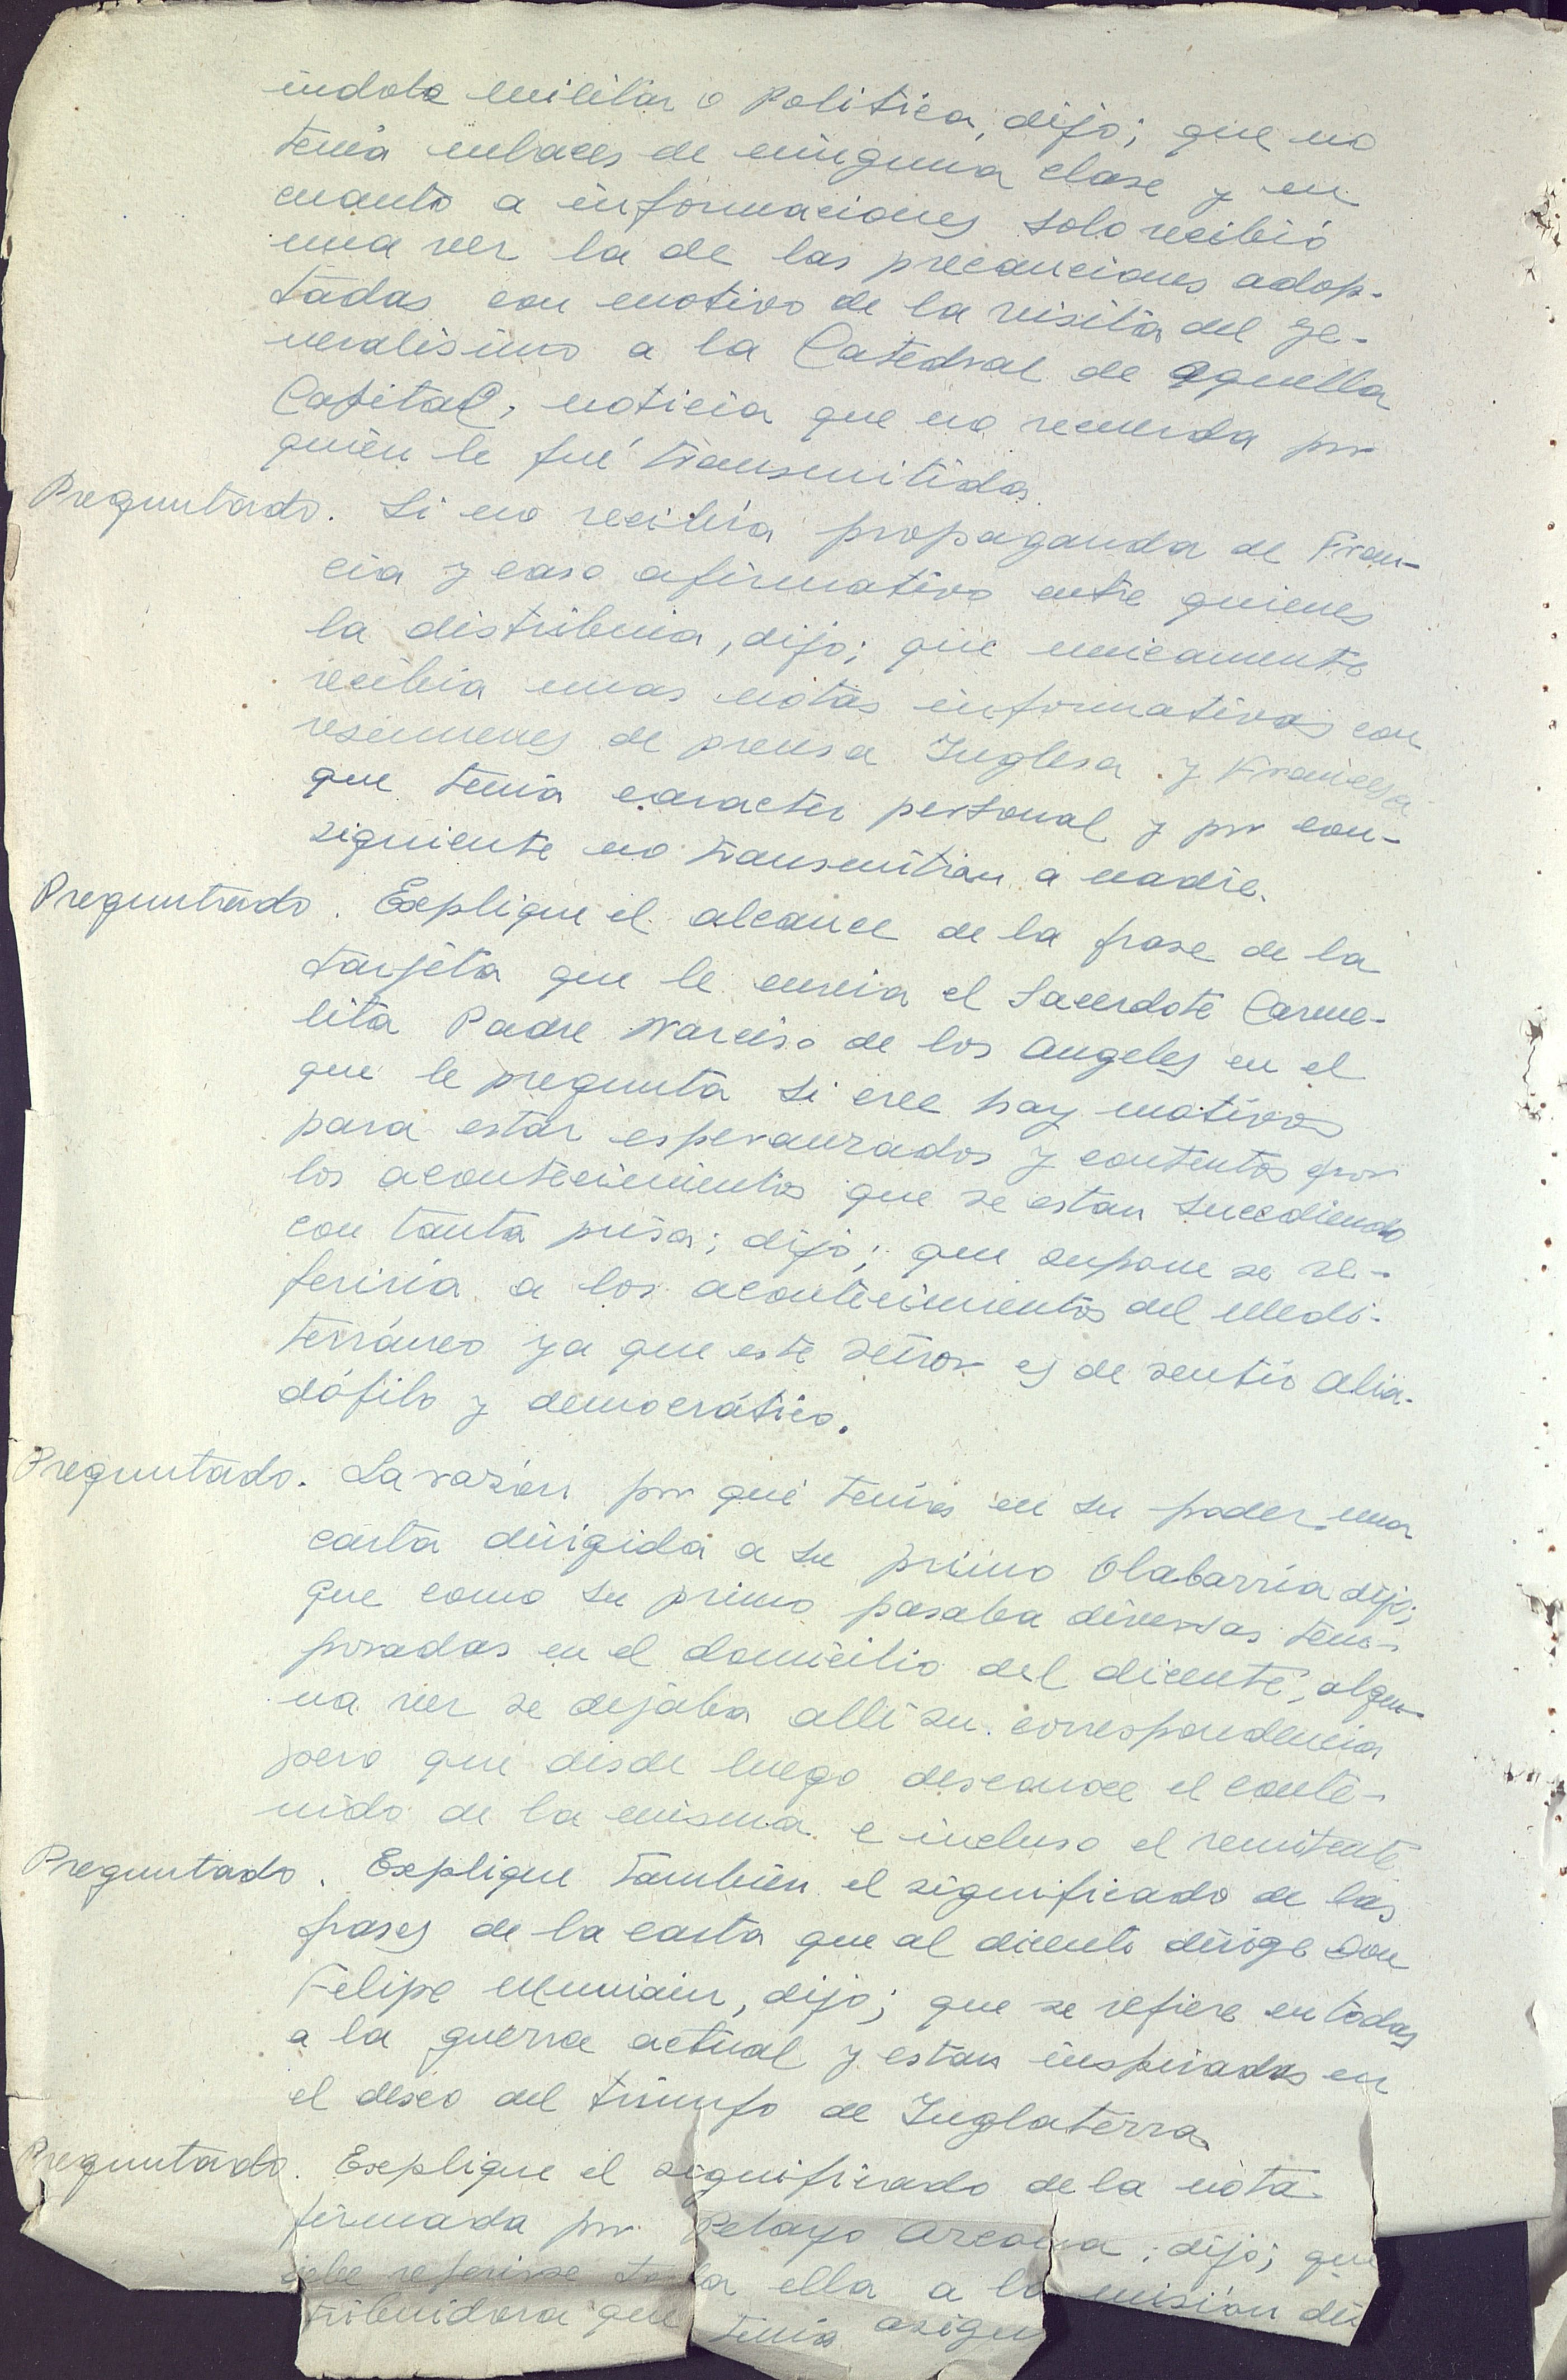 indole militar o Politica, dijo; que no
tenia enlaces de ninguna clase y en
cuanto a informaciones solo recibió
una vez la de las precauciones adop-
tadas con motivo de la visita del ge-
neralisimo a la Catedral de aquella
Capital, noticia que no recuerda por
quién le fué transmitida.
Preguntado. Si no recibia propaganda de Fran-
cia y caso afirmativo entre quienes
la distribuia, dijo; que unicamente
recibia unas notas informativas con
resumenes de prensa Inglesa y Francesa
que tenia caracter personal y por con-
siguiente no transmitian a nadie.
Preguntado. Explique el alcance de la frase de la
tarjeta que le envia el Sacerdote Carme-
lita Padre Narciso de los Angeles en el
que le pregunta si cree hay motivos
para estar esperanzados y contentos por
los acontecimientos que se estan sucediendo
con tanta prisa; dijo; que supone se re-
feriria a los acontecimientos del Medi-
terráneo ya que este señor es de sentir alia-
dófilo y democrático.
Preguntado. La razón por qué tenia en su poder una
carta dirigida a su primo Olabarria dijo;
que como su primo pasaba diversas tem-
poradas en el domicilio del dicente, algu-
na vez se dejaba alli su correspondencia
pero que desde luego desconoce el conte-
nido de la misma e incluso el remitente
Preguntado. Explique tambien el significado de las
frases de la carta que al dicente dirige Don
Felipe Muniain, dijo; que se refiere en todas
a la guerra actual y estan inspirados en
el deseo del triunfo de Inglaterra
Preguntado. Explique el significado de la nota
firmada por Pelayo Arcoma; dijo; que
debe referirse toda ella a la misión dis
tribuidora que tenia asign